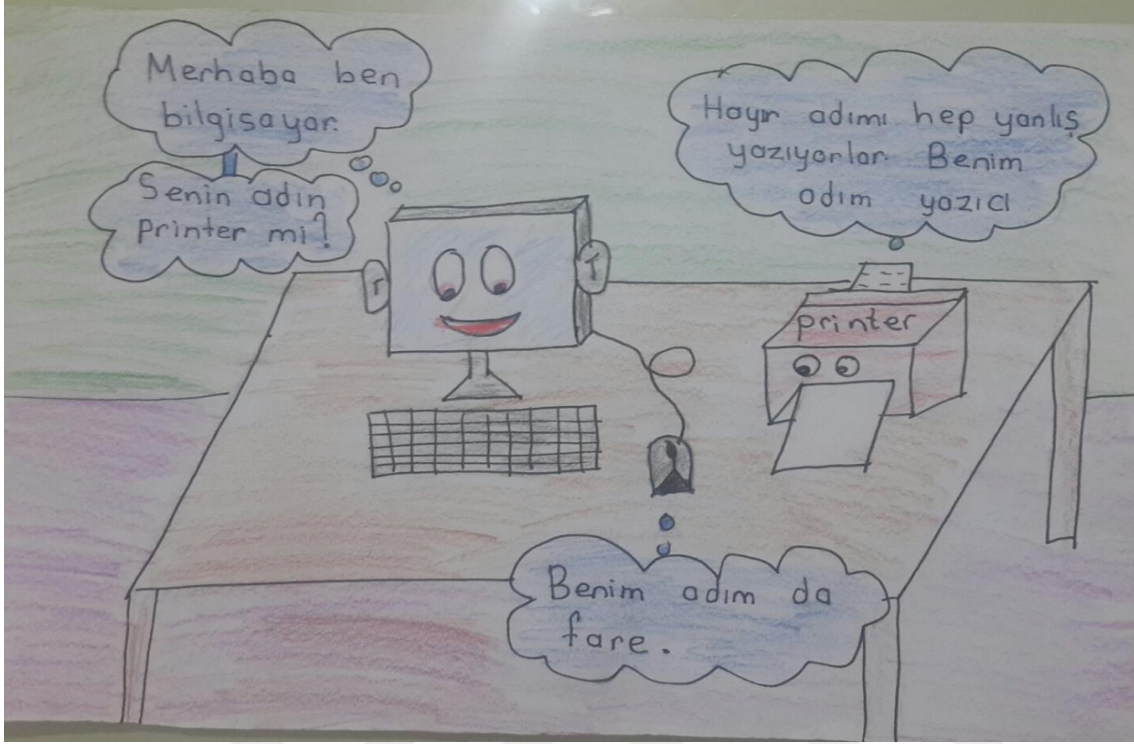 Merhaba ben
bilgisayar.
Senin adın
printer mi?
Hayır adımı hep yanlış
yazıyorlar. Benim
adım yazıcı
printer
Benim adım da
fare.